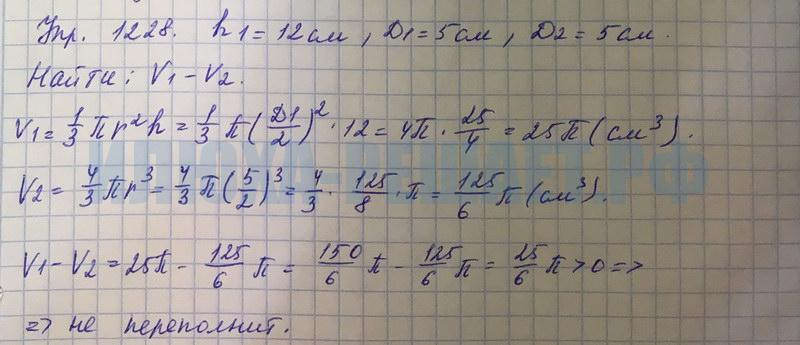 Упр. 1228. h1 = 12 см, D1 = 5 см, D2 = 5 см.
Найти: V1 - V2.
V1 = 1/3 πr²h = 1/3 π(D1/2)² · 12 = 4π · 25/4 = 25π (см³).
ИЛЮХА-РЕШАЕТ.РФ
V2 = 4/3 πr³ = 4/3 π(5/2)³ = 4/3 · 125/8 · π = 125/6 π (см³).
V1 - V2 = 25π - 125/6 π = 150/6 π - 125/6 π = 25/6 π > 0 =>
=> не переполнит.